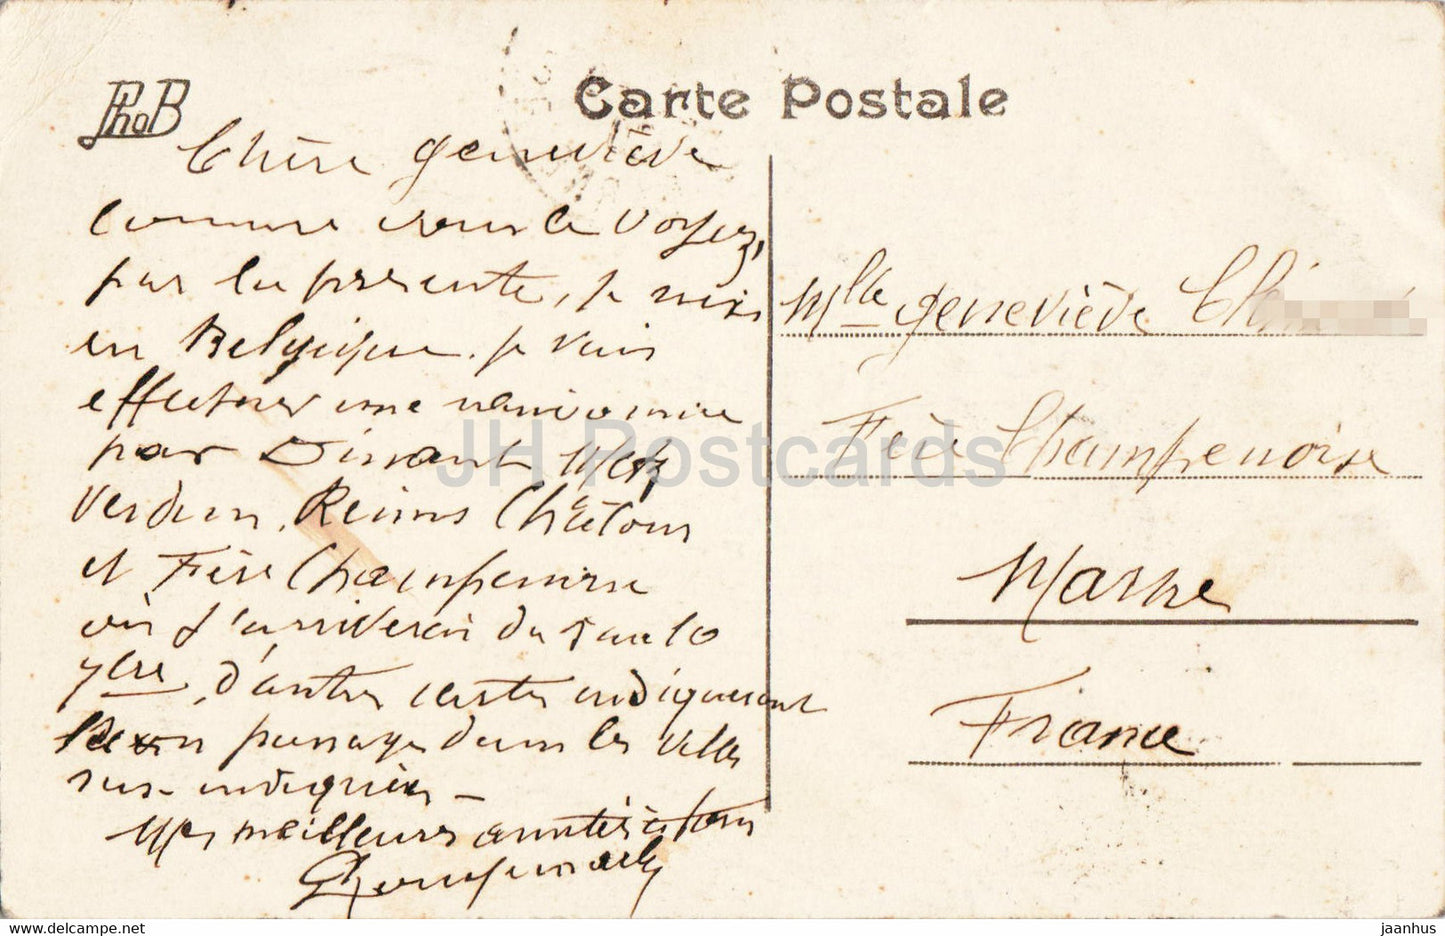 PhoB
Carte Postale
Chère Geneviève
comme vous le voyez,
par la présente, je suis
en Belgique. je vais
effectuer une randonnée
par Dinant Metz
Verdun, Reims Châlons
et Fère Champenoise
où j'arriverai du 5 au 10
7bre, d'autres cartes indiqueront
mon passage dans les villes
sus-indiquées -
Mes meilleures amitiés à tous
Mlle Geneviève
Fère Champenoise
Marne
France
JH Postcards
www.delcampe.net
jaanhus